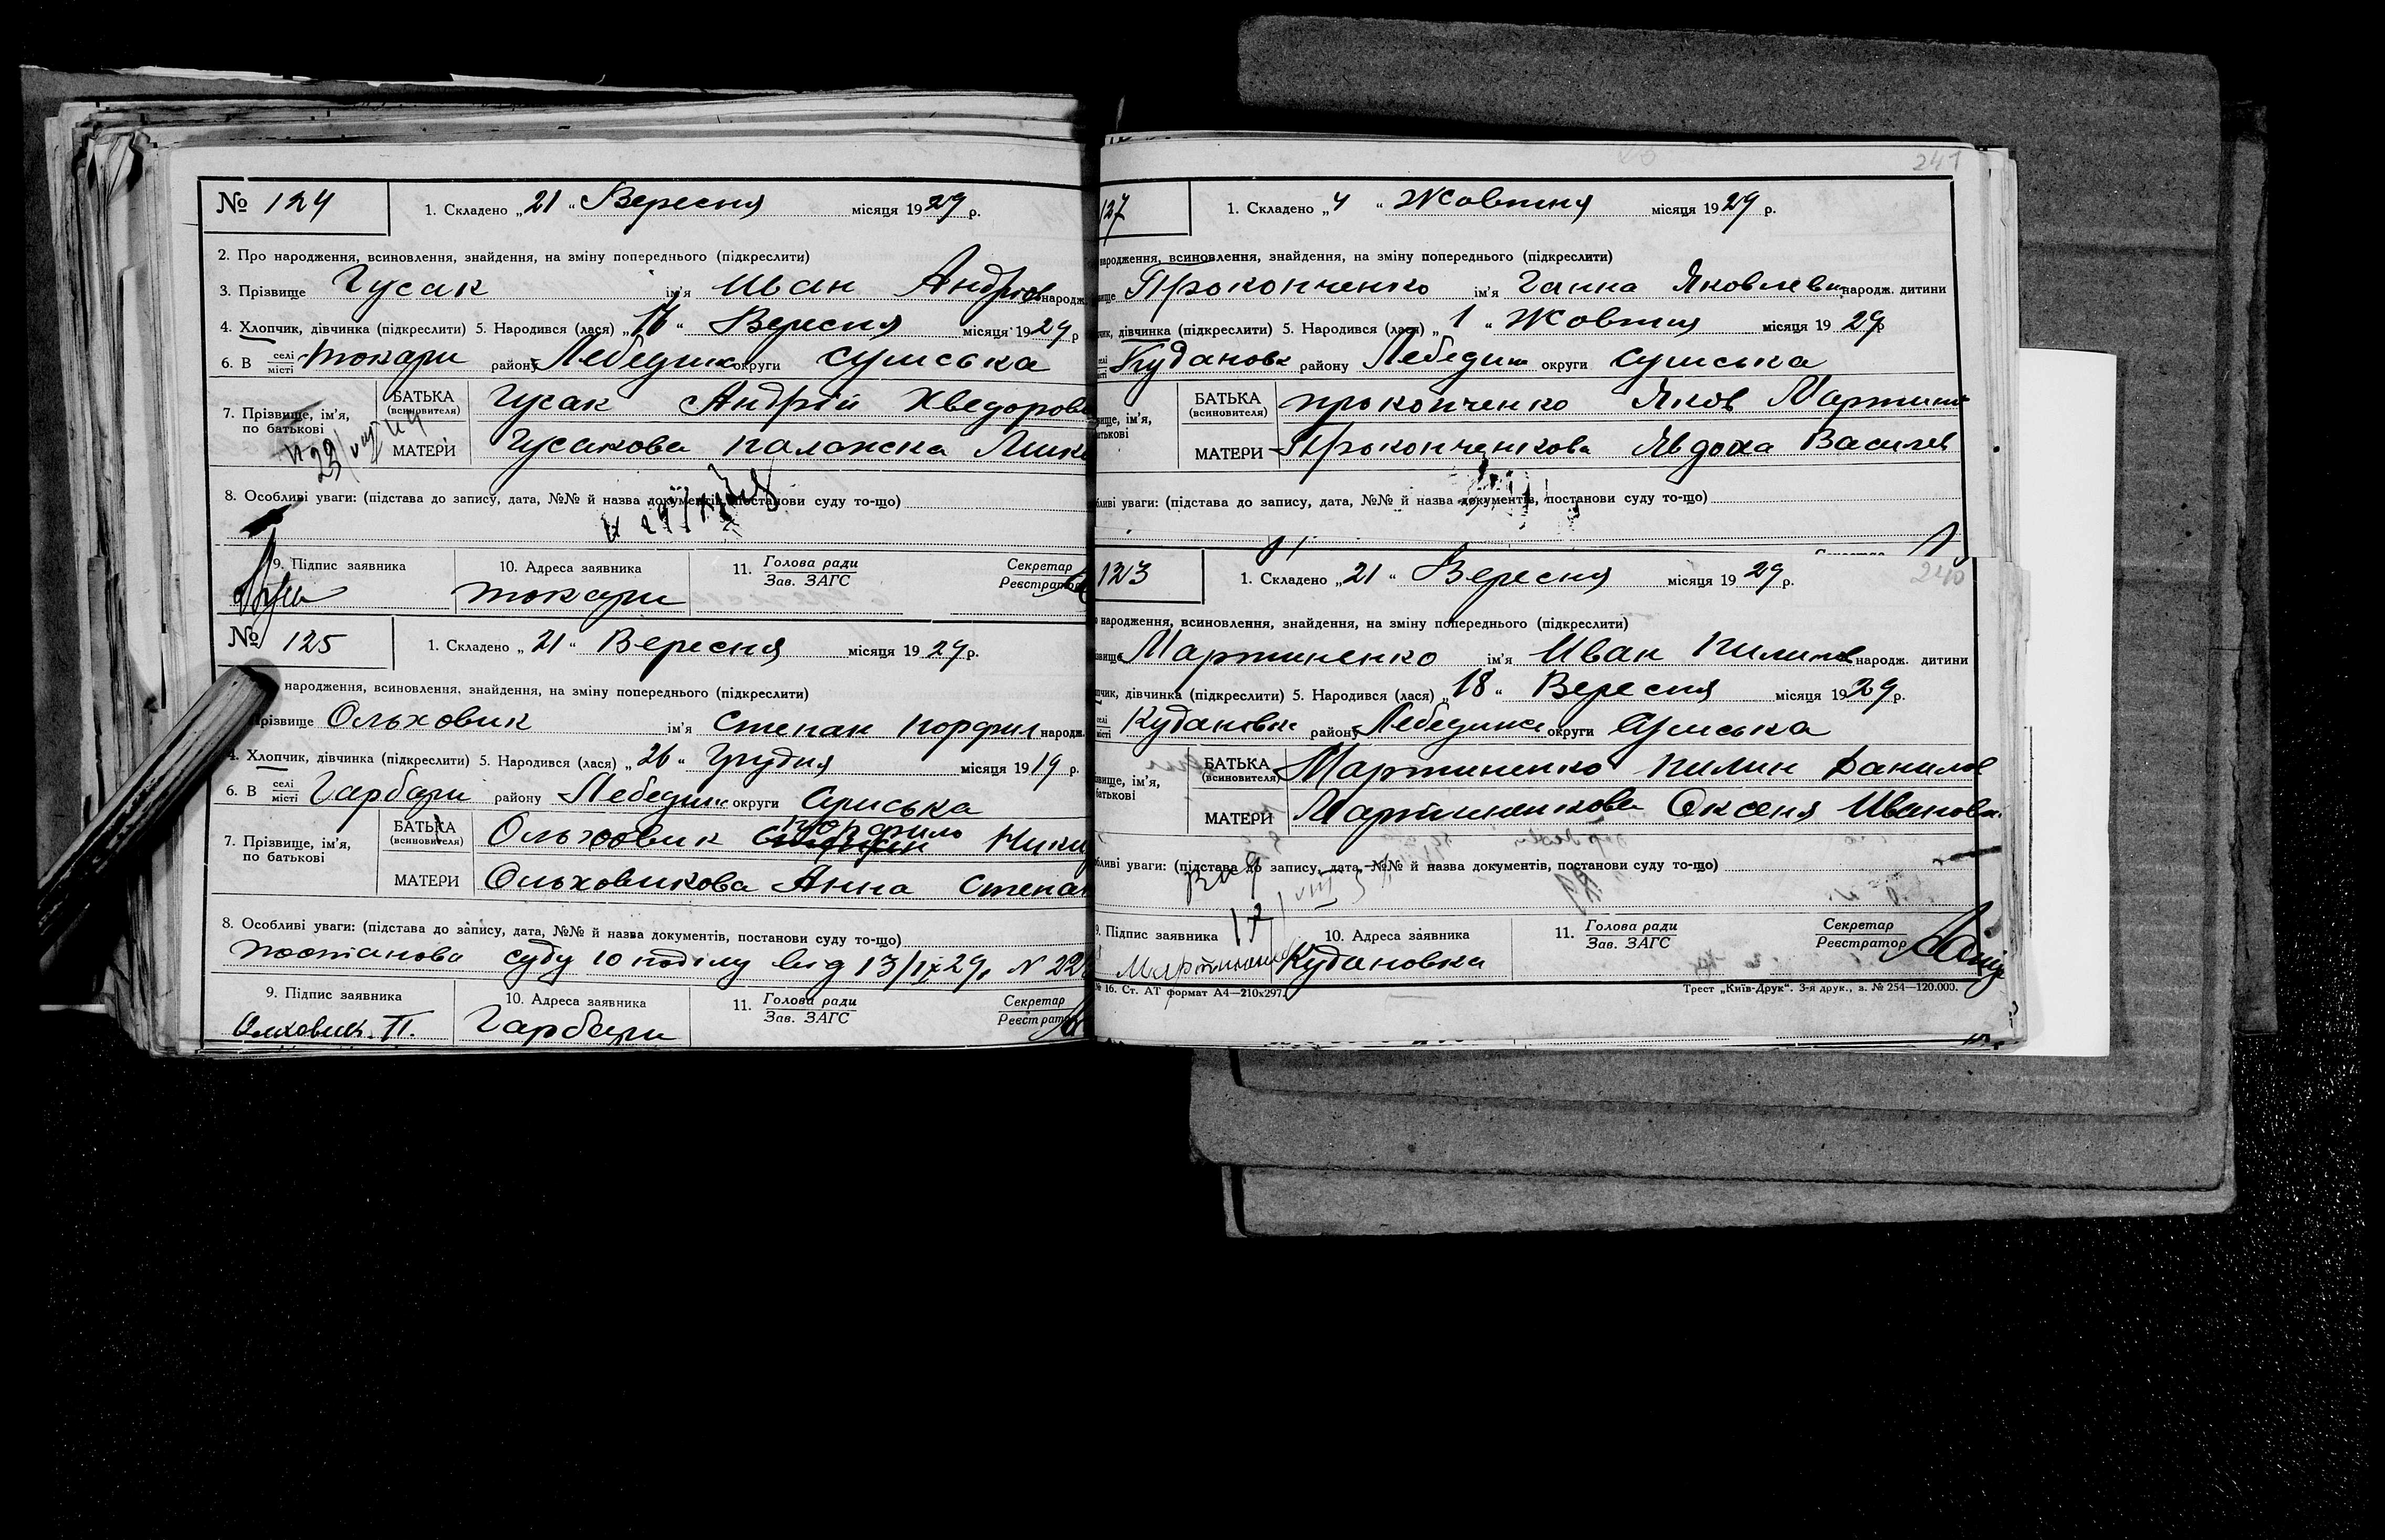 № 124
1. Складено „21“ Вересня місяця 1929 р.
2. Про народження, всиновлення, знайдення, на зміну попереднього (підкреслити)
3. Прізвище Гусак ім'я Иван Андріов народж.
4. Хлопчик, дівчинка (підкреслити) 5. Народився (лася) „ “ Вересня місяця 1929 р
6. В селі місті Токари району Лебединс округи Сумська
7. Прізвище, ім'я, по батькові
БАТЬКА (всиновителя) Гусак Андрій Хведорови
МАТЕРИ Гусакова Палажка
8. Особливі уваги: (підстава до запису, дата, №№ й назва документів, постанови суду то-що)
9. Підпис заявника
10. Адреса заявника Токари
11. Голова ради Зав. ЗАГС
Секретар Реєстратор
№ 125
1. Складено „21“ Вересня місяця 1929 р.
народження, всиновлення, знайдення, на зміну попереднього (підкреслити)
Прізвище Ольховик ім'я Степан Порфил народж.
4. Хлопчик, дівчинка (підкреслити) 5. Народився (лася) „26“ Грудня місяця 1919 р.
6. В селі місті Гарбари району Лебединс округи Сумська
7. Прізвище, ім'я, по батькові
БАТЬКА (всиновителя) Ольховик Порфило Мики
МАТЕРИ Ольховикова Анна Степан
8. Особливі уваги: (підстава до запису, дата, №№ й назва документів, постанови суду то-що)
Постанова суду 10 поділу від 13/IX 29, N 228
9. Підпис заявника Олховик. П.
10. Адреса заявника Гарбари
11. Голова ради Зав. ЗАГС
Секретар Реєстратор
241
127
1. Складено „4“ Жовтня місяця 1929 р.
народження, всиновлення, знайдення, на зміну попереднього (підкреслити)
вище Прокопченко ім'я Ганна Яковлевн народж. дитини
чик, дівчинка (підкреслити) 5. Народився (лася) „1“ Жовтня місяця 1929 р
селі місті Кудановк району Лебедин округи Сумська
вище, ім'я, батькові
БАТЬКА (всиновителя) Прокопченко Яков Мартин
МАТЕРИ Прокопченкова Явдоха Василев
бливі уваги: (підстава до запису, дата, №№ й назва документів, постанови суду то-що)
Секретар
240
123
1. Складено „21“ Вересня місяця 1929 р.
народження, всиновлення, знайдення, на зміну попереднього (підкреслити)
звище Мартиненко ім'я Иван Пилипов народж. дитини
пчик, дівчинка (підкреслити) 5. Народився (лася) „18“ Вересня місяця 1929 р.
селі місті Кудановк району Лебединс округи Сумська
вище, ім'я, батькові
БАТЬКА (всиновителя) Мартиненко Пилип Данилов
МАТЕРИ Мартиненкова Оксеня Иванова
бливі уваги: (підстава до запису, дата, №№ й назва документів, постанови суду то-що)
9. Підпис заявника
10. Адреса заявника Кудановка
11. Голова ради Зав. ЗАГС
Секретар Реєстратор
№ 16. Ст. АТ формат А4—210х297. Трест „Київ-Друк“. 3-я друк., з. № 254—120.000.